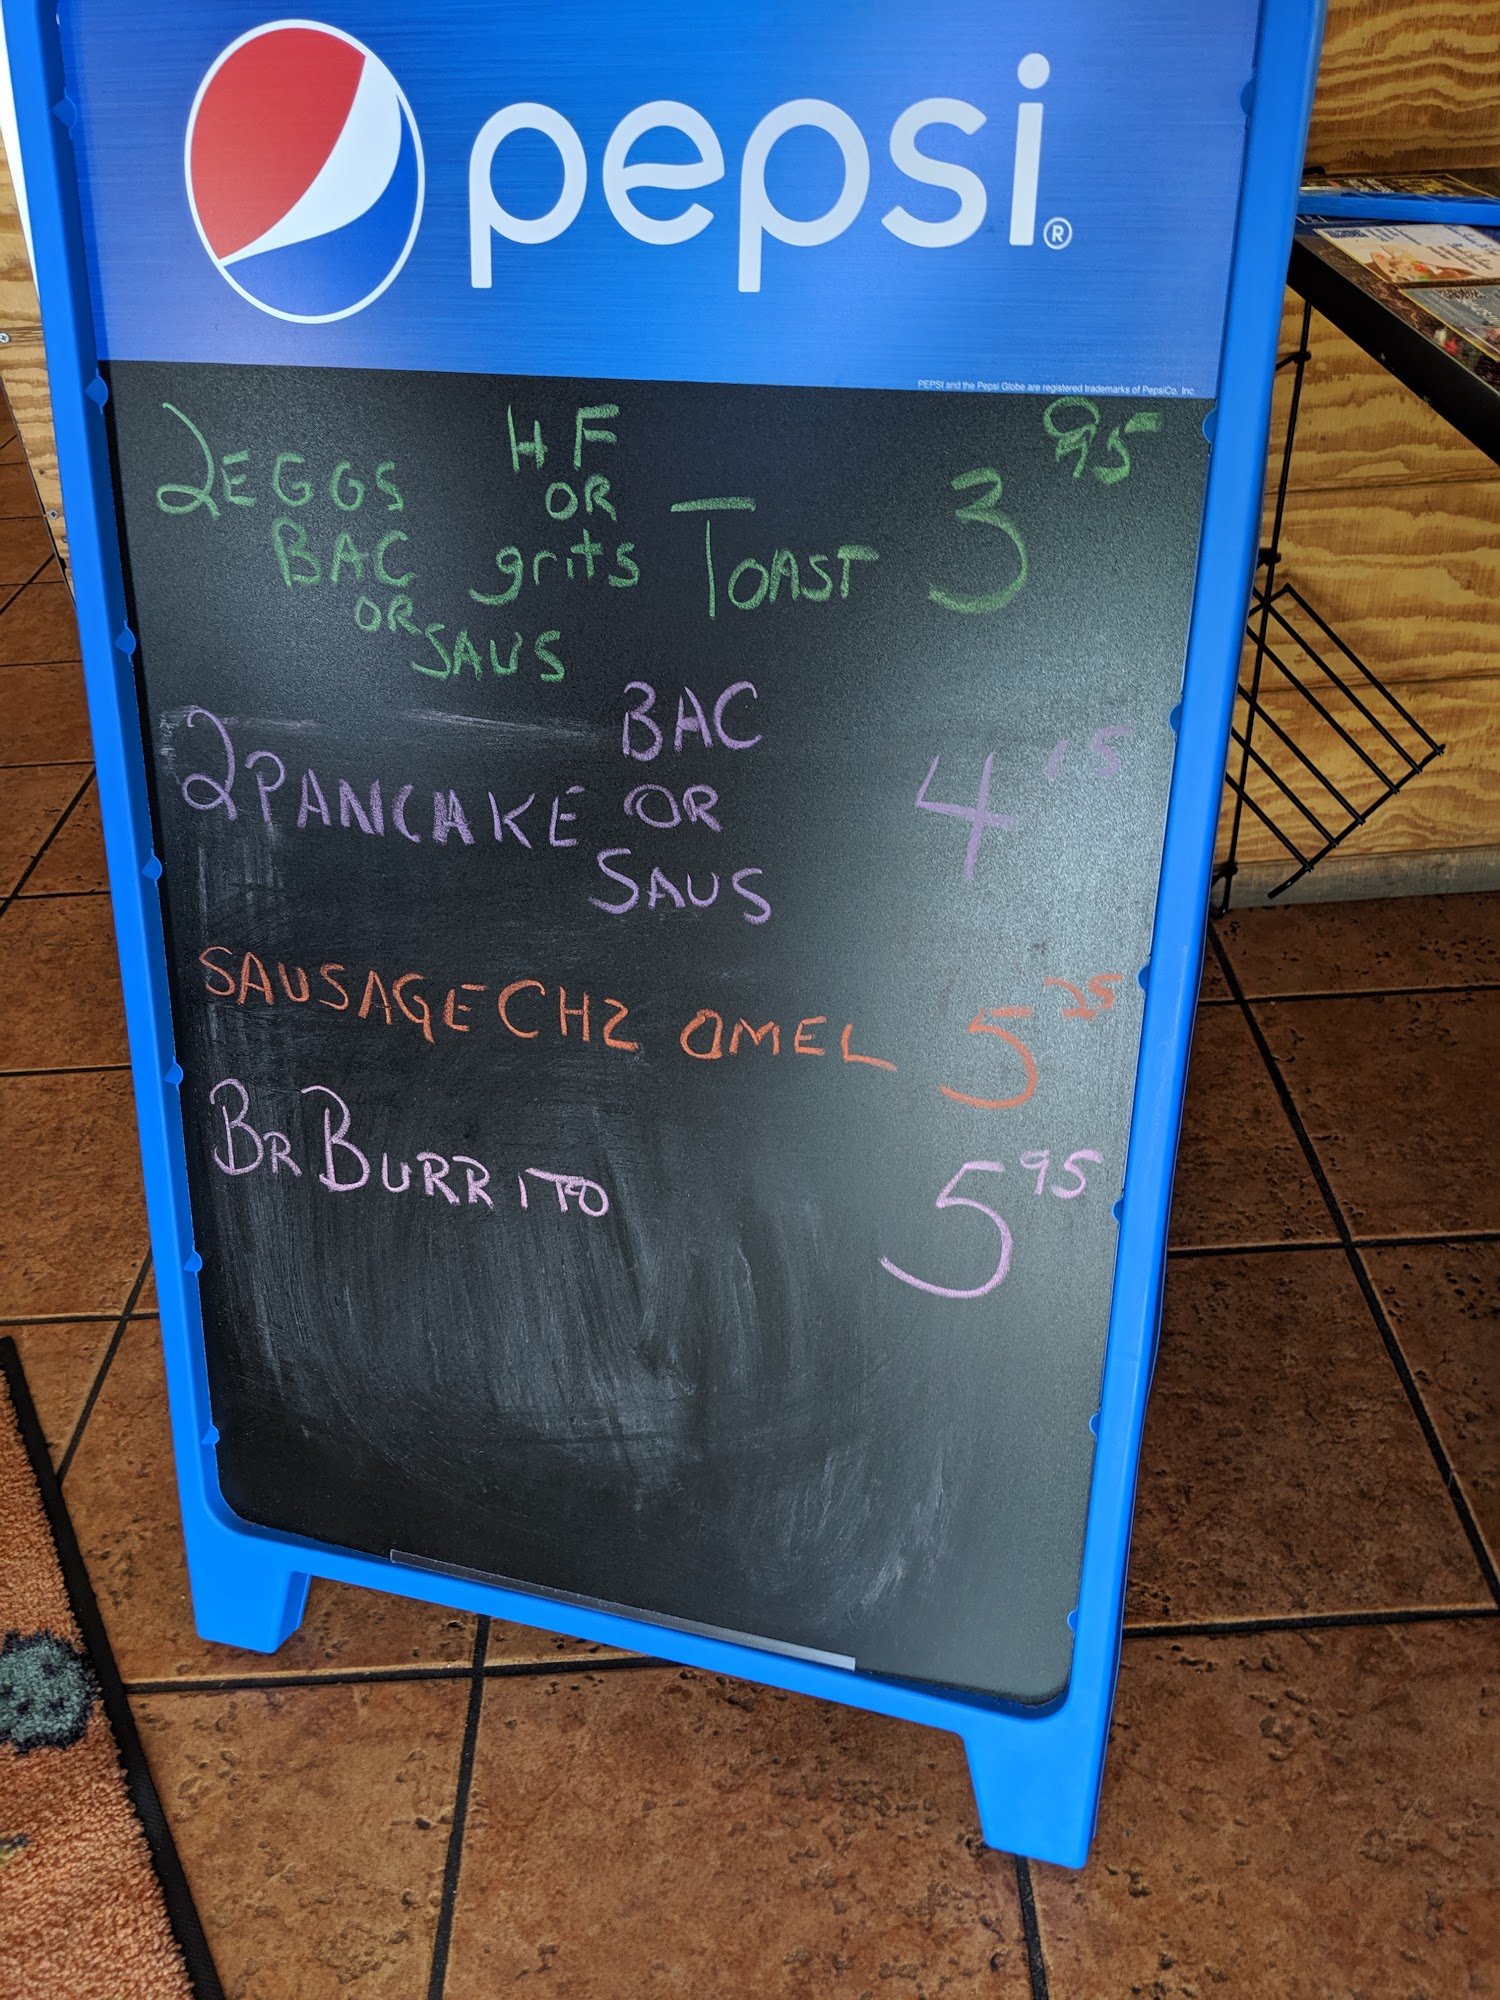 pepsi®
PEPSI and the Pepsi Globe are registered trademarks of PepsiCo, Inc.
2 EGGS HF 3 95
BAC OR TOAST
OR grits
SAUS
2 PANCAKE BAC 4 15
OR
SAUS
SAUSAGE CHZ OMEL 5 25
BR BURRITO 5 95